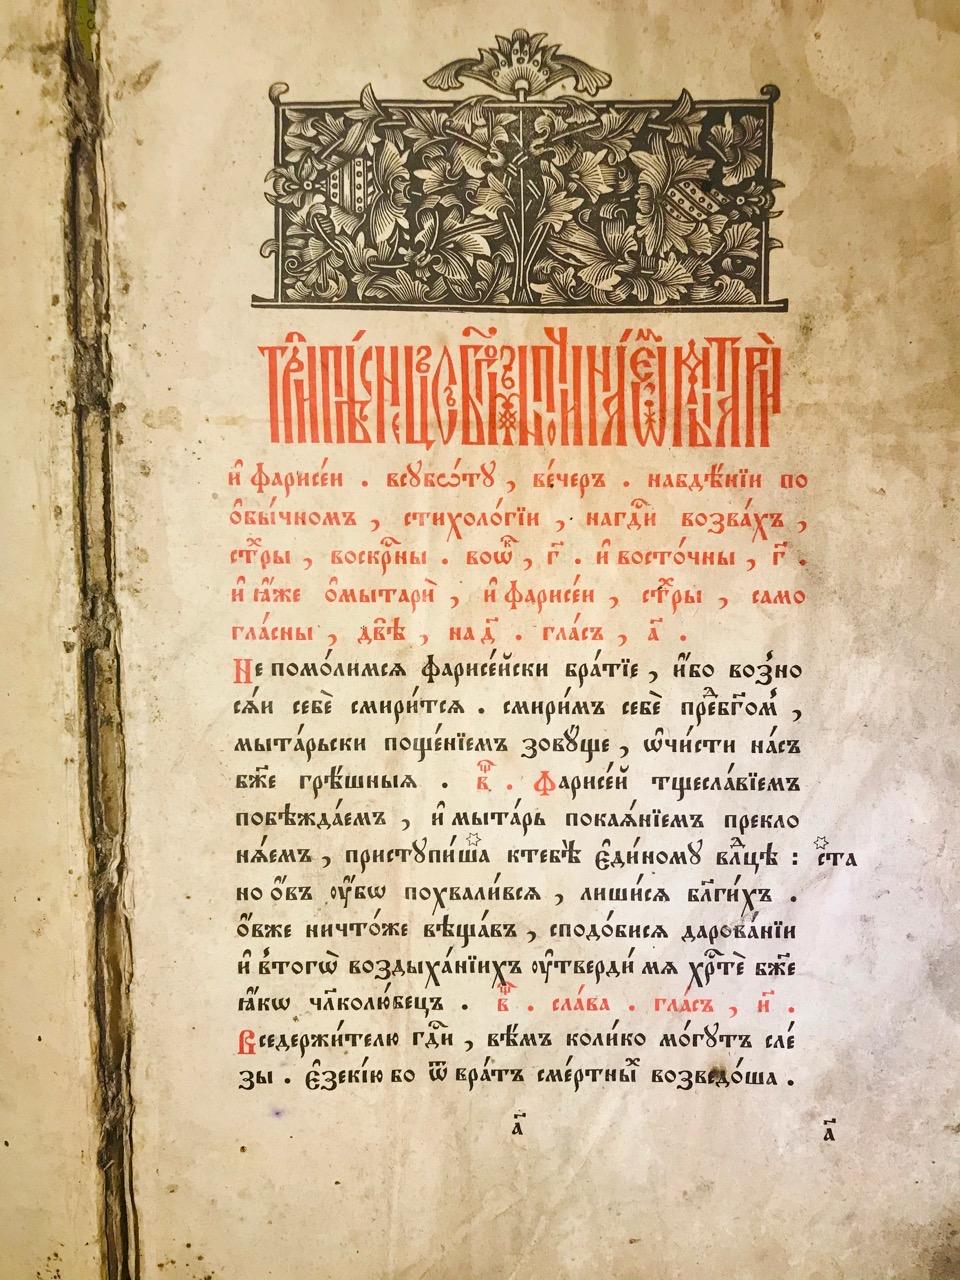 Трипѣснецъ, с бг҃омъ починаемъ, ѿ мытарѧ̀
и҆ фарисе́и . всꙋбѡ́тꙋ , ве́черъ . набдѣ́нїи по
ѻ҆бы́чномъ , стихоло́гїи , нагдⷭ҇и возва́хъ ,
стⷯры , воскрⷭ҇ны . воѡ҆ⷦ҇ , г҃ . и҆ восто́чны , г҃ .
и҆ ꙗ҆́же ѻ҆мытарѝ , и҆ фарисе́и , стⷯры , само
гла́сны , двѣ̀ , на д҃ . гла́съ , а҃ .
Не помо́лимсѧ фарисе́йски бра́тїе , и҆́бо возно
сѧ́и себѐ смири́тсѧ . смири́мъ себѐ преⷣбг҃ом̾ ,
мыта́рьски поще́нїемъ зовꙋ́ще , ѡ҆чи́сти на́съ
бж҃е грѣ́шныѧ . в҃ . Фарисе́й тщесла́вїемъ
побѣжда́емъ , и҆ мыта́рь покаѧ́нїемъ прекло
нѧ́емъ , пристꙋпи́ша ктебѣ̀ є҆ди́номꙋ влⷣцѣ : ста
но ѻ҆́въ ᲂу҆́бѡ похвали́всѧ , лиши́сѧ бл҃ги́хъ .
ѻ҆́вже ничто́же вѣща́въ , сподо́бисѧ дарова́нїи
и҆ в̾тогѡ̀ воздыха́нїихъ ᲂу҆тверди́ мѧ хрⷭ҇тѐ бж҃е
ꙗ҆́кѡ чл҃колю́бецъ . в҃ . сла́ва . гла́съ , и҃ .
Вседержи́телю гдⷭ҇и , вѣ́мъ коли́ко мо́гꙋтъ сле́
зы . Є҆зекі́ю бо ѿ вра́тъ сме́ртныⷯ возведо́ша .
а҃
а҃